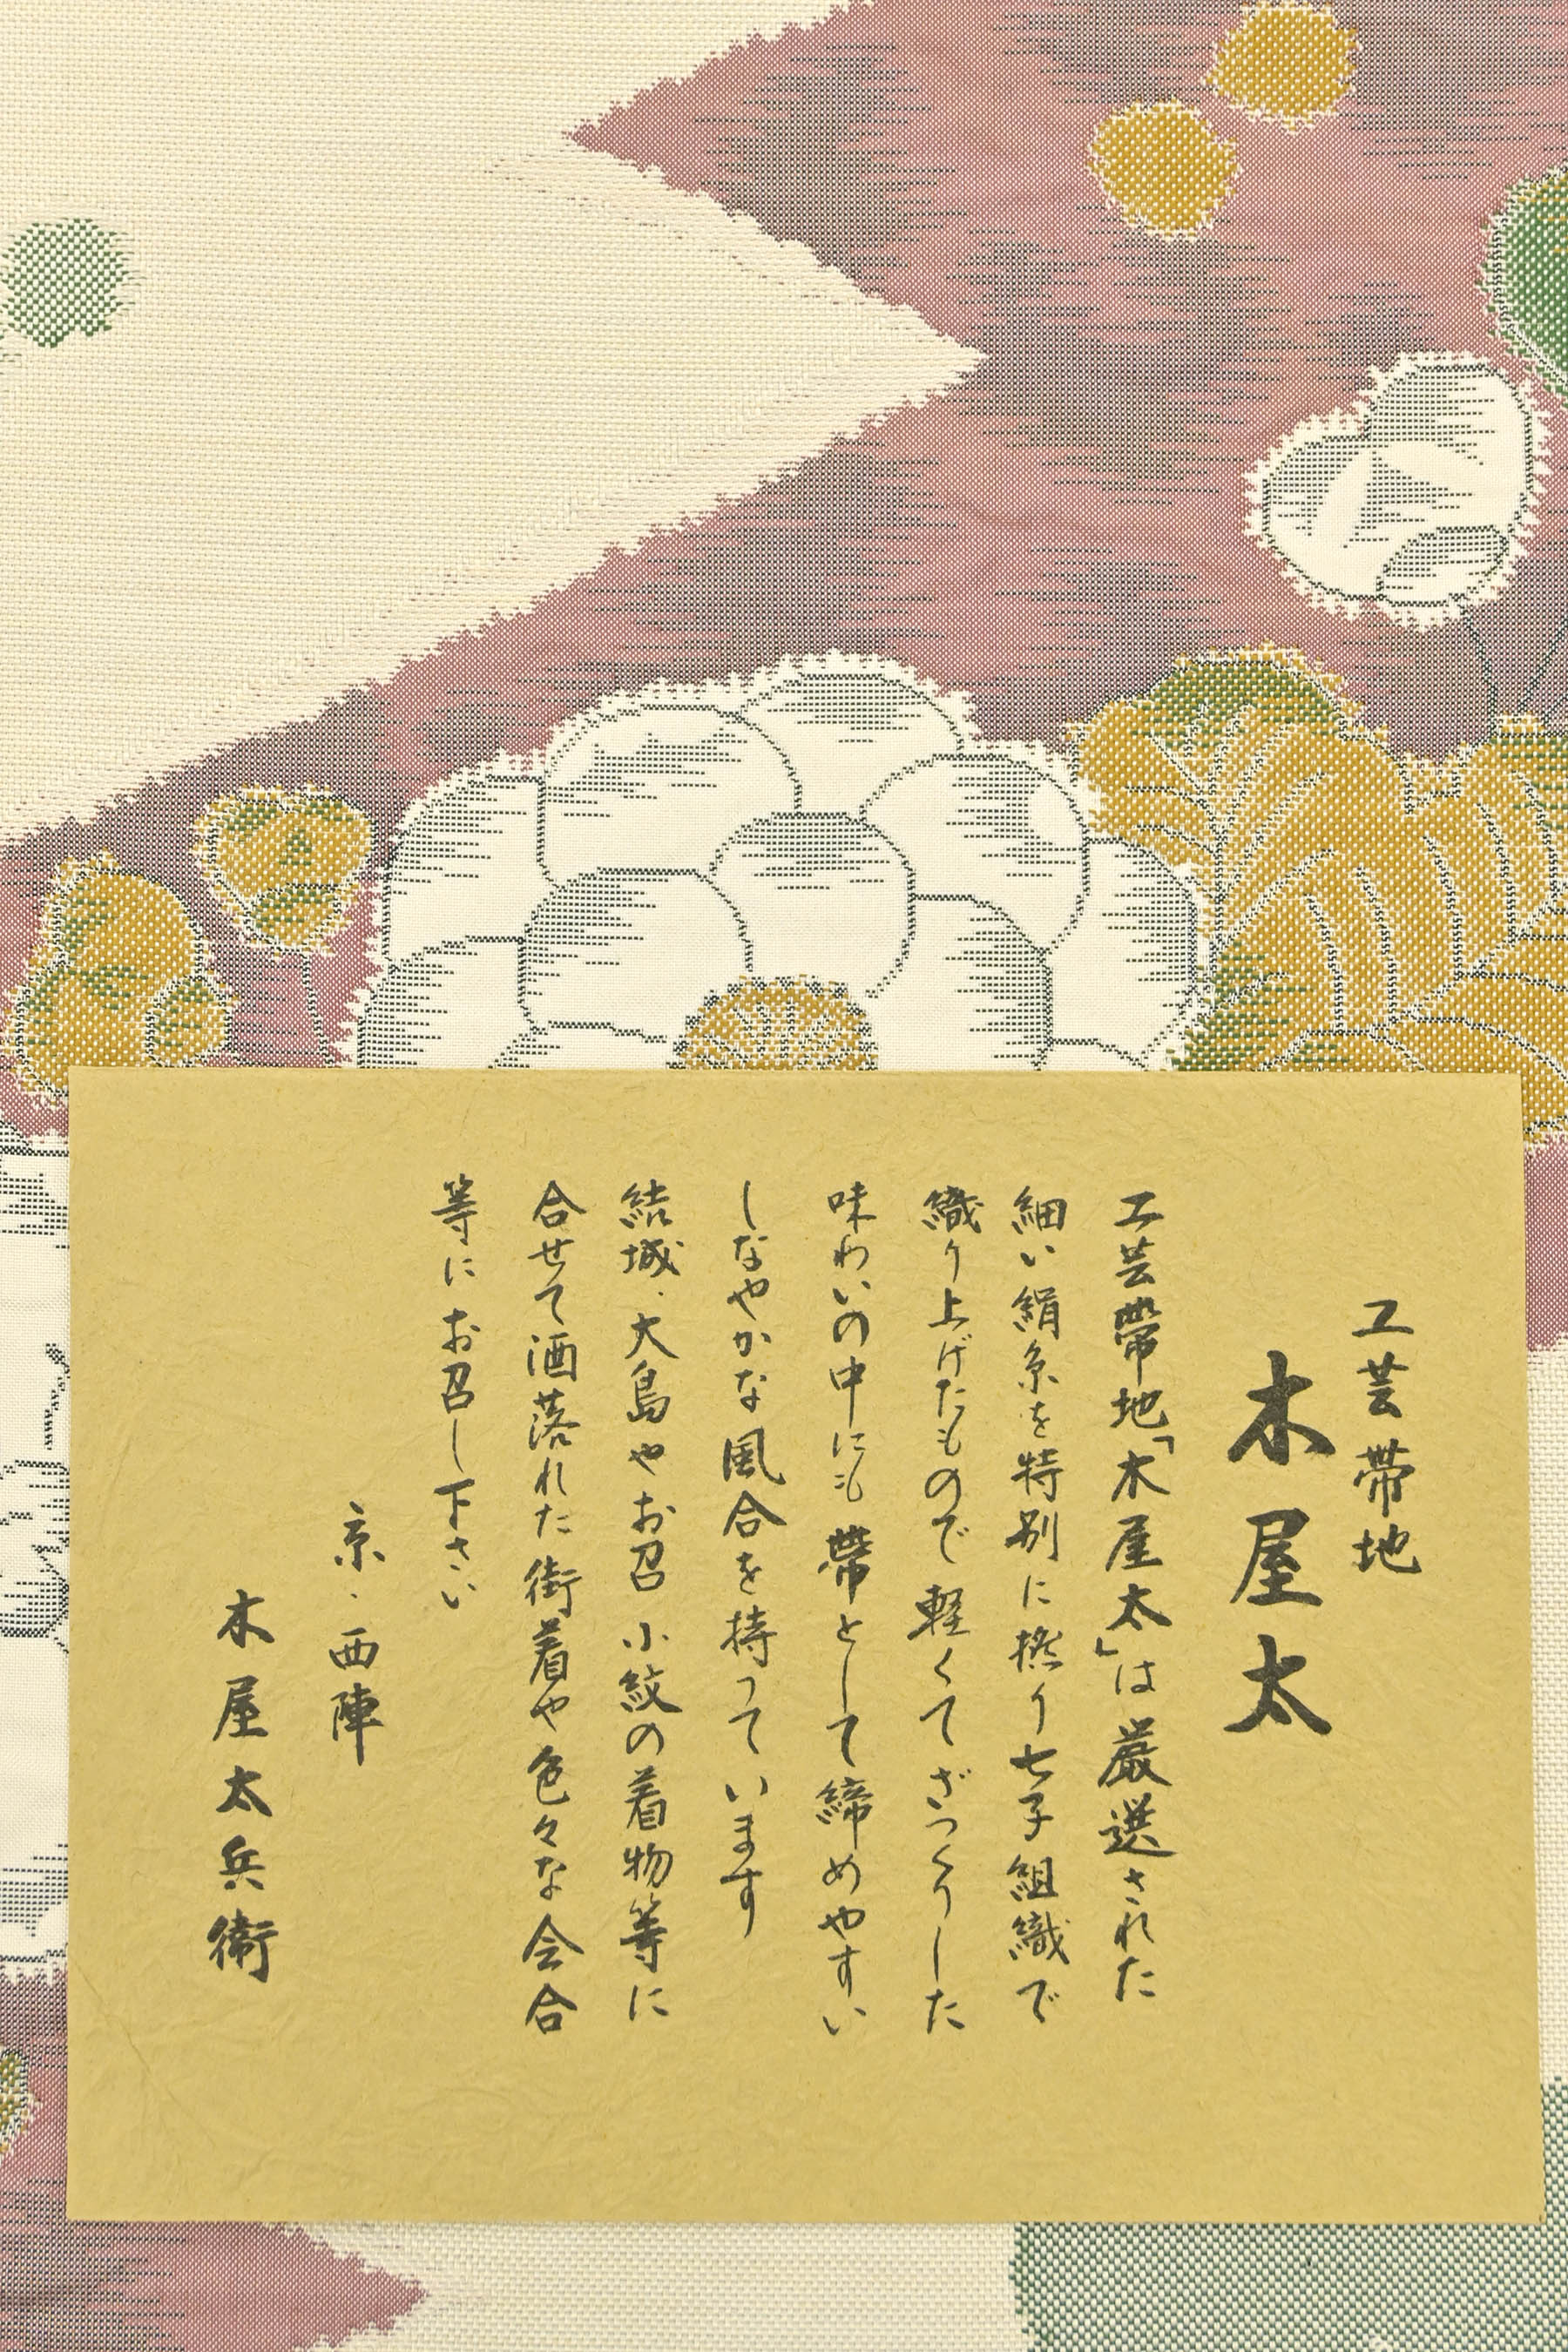 工芸帯地
木屋太
工芸帯地「木屋太」は厳選された
細い絹糸を特別に撚り七子組織で
織り上げたもので軽くてざっくりした
味わいの中にも帯として締めやすい
しなやかな風合を持っています
結城・大島やお召 小紋の着物等に
合せて洒落れた街着や色々な会合
等にお召し下さい
京・西陣
木屋太兵衛